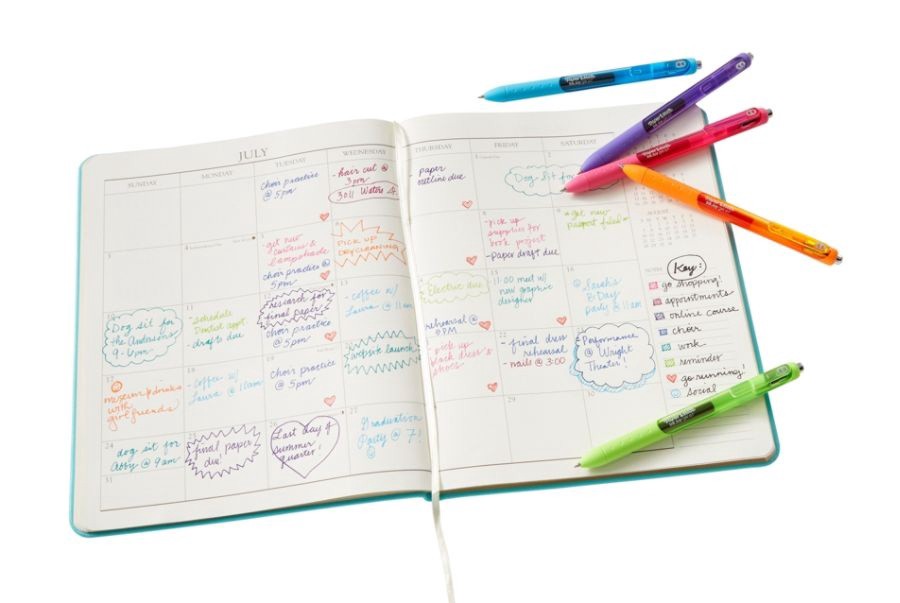 JULY
SUNDAY
MONDAY
TUESDAY
WEDNESDAY
THURSDAY
FRIDAY
SATURDAY
choir practice
@ 5pm
- hair cut @
3pm
3011 Waters
- paper
outline due
2
Dog sit for
3
4
- get new
curtains &
lampshade
choir practice @
5pm
PICK UP
DRYCLEANING
8
- pick up
supplies for
book project
- paper draft due
9
* get new
passport
10
Dog sit for
the Andersons
9-6pm
11
- schedule
Dentist appt
- draft due
12
research for
final paper
choir practice
@ 5pm
13
- coffee w/
Laura @ 11am
Electric due
rehearsal @
8PM
15
11:00 meet w/
new graphic
designer
16
@ Sarah's
B Day
party @ 11am
17
museum & drinks
with
girlfriends
18
- coffee w/
Laura @ 10am
choir practice
@ 5pm
website launch
- pick up
black dress &
shoes
22
- final dress
rehearsal
- nails @ 3:00
23
Performance
@ Wright
Theater!
24
dog sit for
Abby @ 9am
25
final paper
due!
26
Last day of
summer
quarter!
27
Graduation
Party @ 7!
29
30
31
AUGUST
NOTES
Key:
go shopping!
appointments
online course
choir
work
reminder
go running!
social